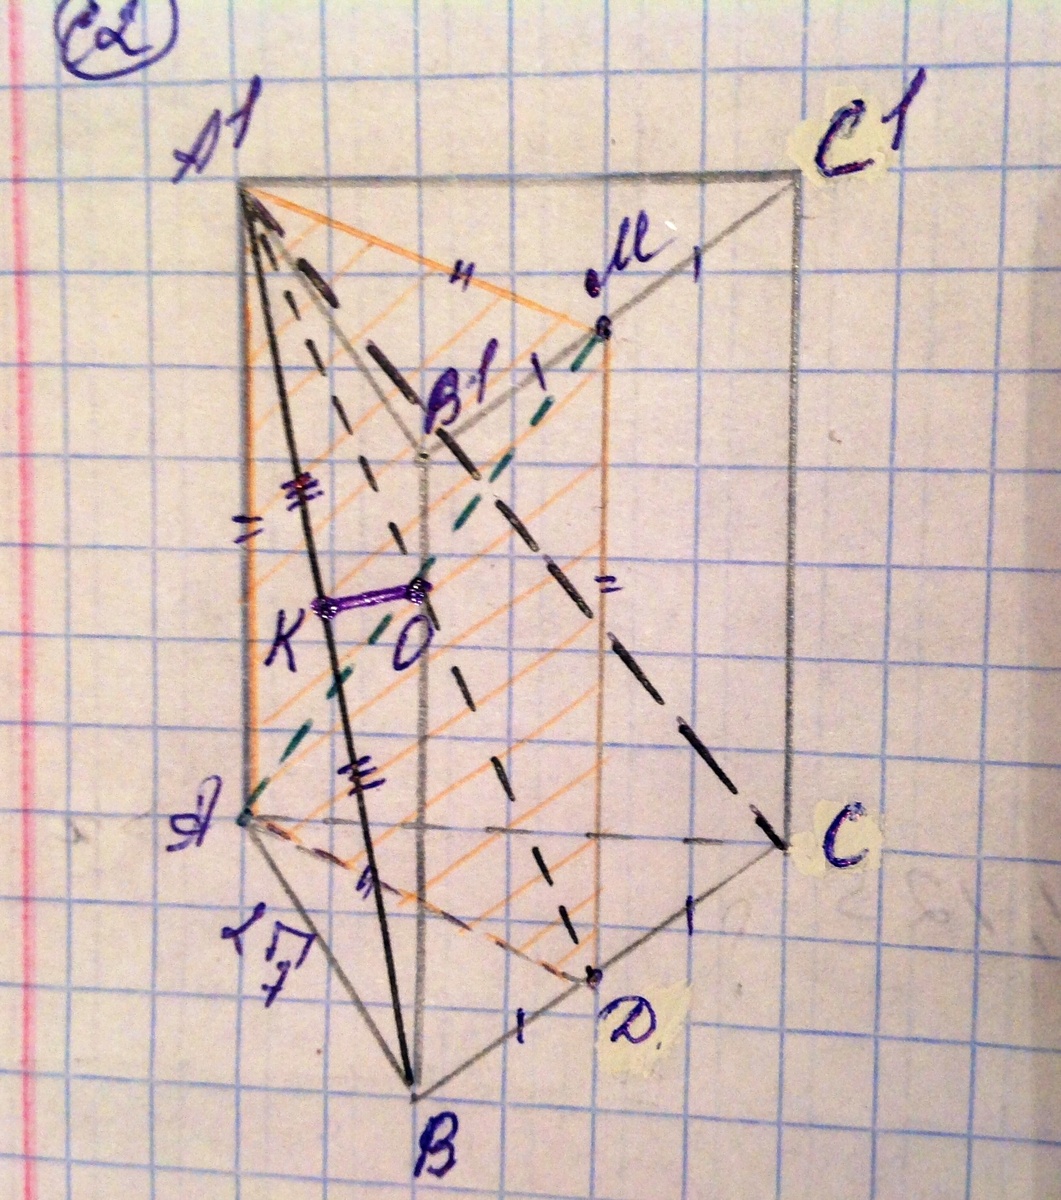 C2
A1
C1
M
B1
K
O
A
C
2√7
D
B